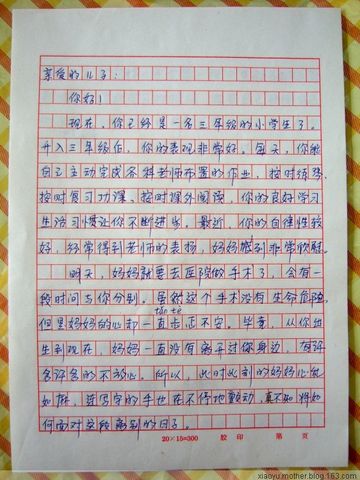 亲爱的儿子：
你好！
现在，你已经是一名三年级的小学生了。
升入三年级后，你的表现非常好。每天，你能
自己主动完成各科老师布置的作业，按时练琴、
按时复习功课、按时课外阅读，你的良好学习
生活习惯让你不断进步。最近，你的自律性较
好，经常得到老师的表扬，妈妈感到非常欣慰。
明天，妈妈就要去医院做手术了，会有一
段时间与你分别。虽然这个手术没有生命危险，
tǎn tè
但是妈妈的心却一直忐忑不安。毕竟，从你出
生到现在，妈妈一直没有离开过你身边，有许
多许多的不放心。所以，此时此刻的妈妈心乱
如麻，连写字的手也在不停地颤动，真不知将如
何面对这段离别的日子。
20×15=300 胶印 第 页
xiaoyu.mother.blog.163.com